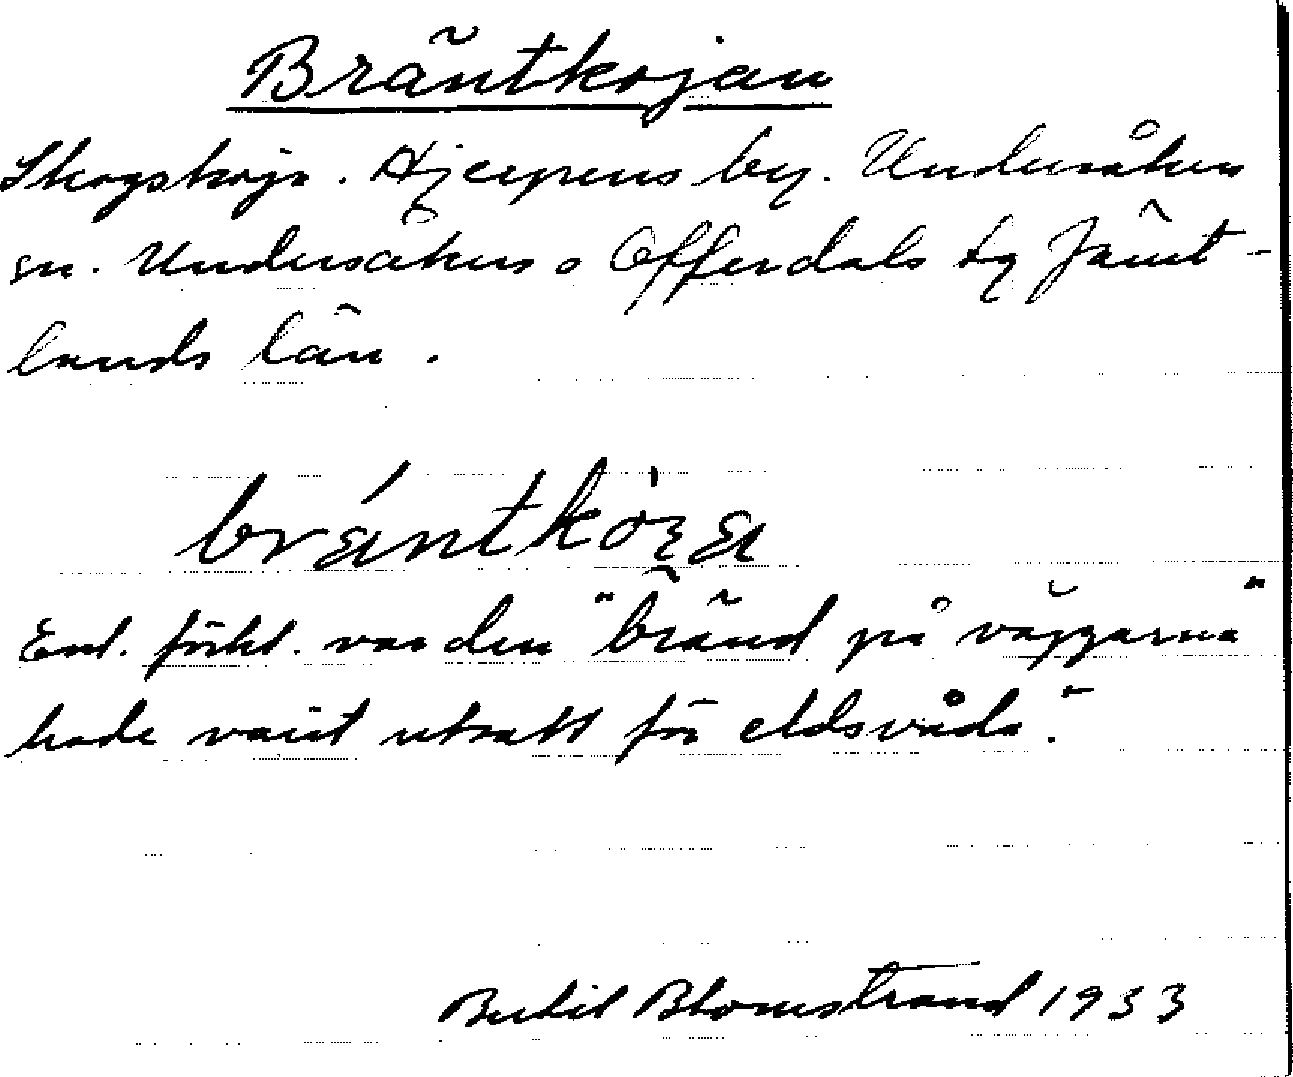 Bräntkojan
Skogskoja. Hjerpens by. Undersåkers
sn. Undersåkers o Offerdals tg Jämt-
lands län.
bräntköja
Enl. förkl. var den "bränd på väggarna"
hade varit utsatt för eldsvåda".
Bertil Blomstrand 1933